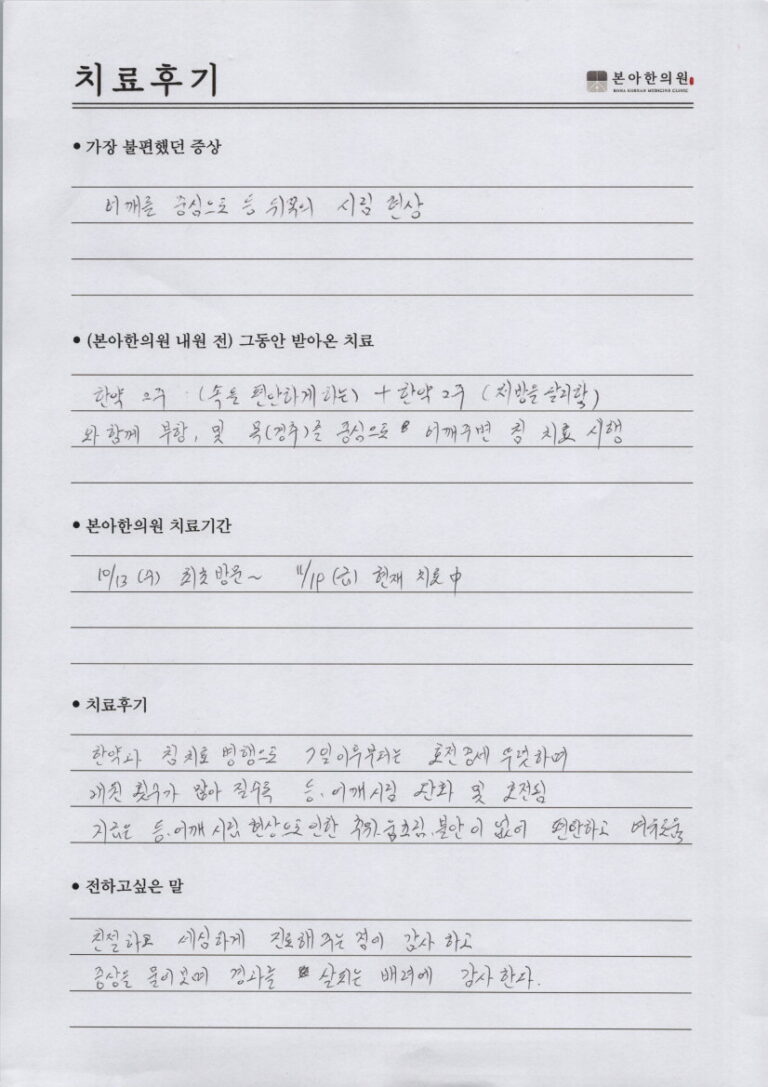 치료후기
본아한의원
BONA KOREAN MEDICINE CLINIC
• 가장 불편했던 증상
어깨를 중심으로 등 뒤쪽의 시림 현상
• (본아한의원 내원 전) 그동안 받아온 치료
한약 2주 (속을 편안하게 하는) + 한약 2주 (처방을 달리함)
와 함께 부항, 및 목(경추)를 중심으로 어깨주변 침 치료 시행
• 본아한의원 치료기간
10/13 (수) 최초 방문 ~ 11/19 (금) 현재 치료 中
• 치료후기
한약과 침치료 병행으로 7일이후부터는 호전증세 뚜렷하며
내원 횟수가 많아 질수록 등.어깨시림 완화 및 호전됨
지금은 등.어깨 시림 현상으로 인한 추위 움츠림.불안이 없어 편안하고 여유로움
• 전하고싶은 말
친절하고 세심하게 진료해 주는 점이 감사 하고
증상을 물어보며 경과를 살피는 배려에 감사 한다.